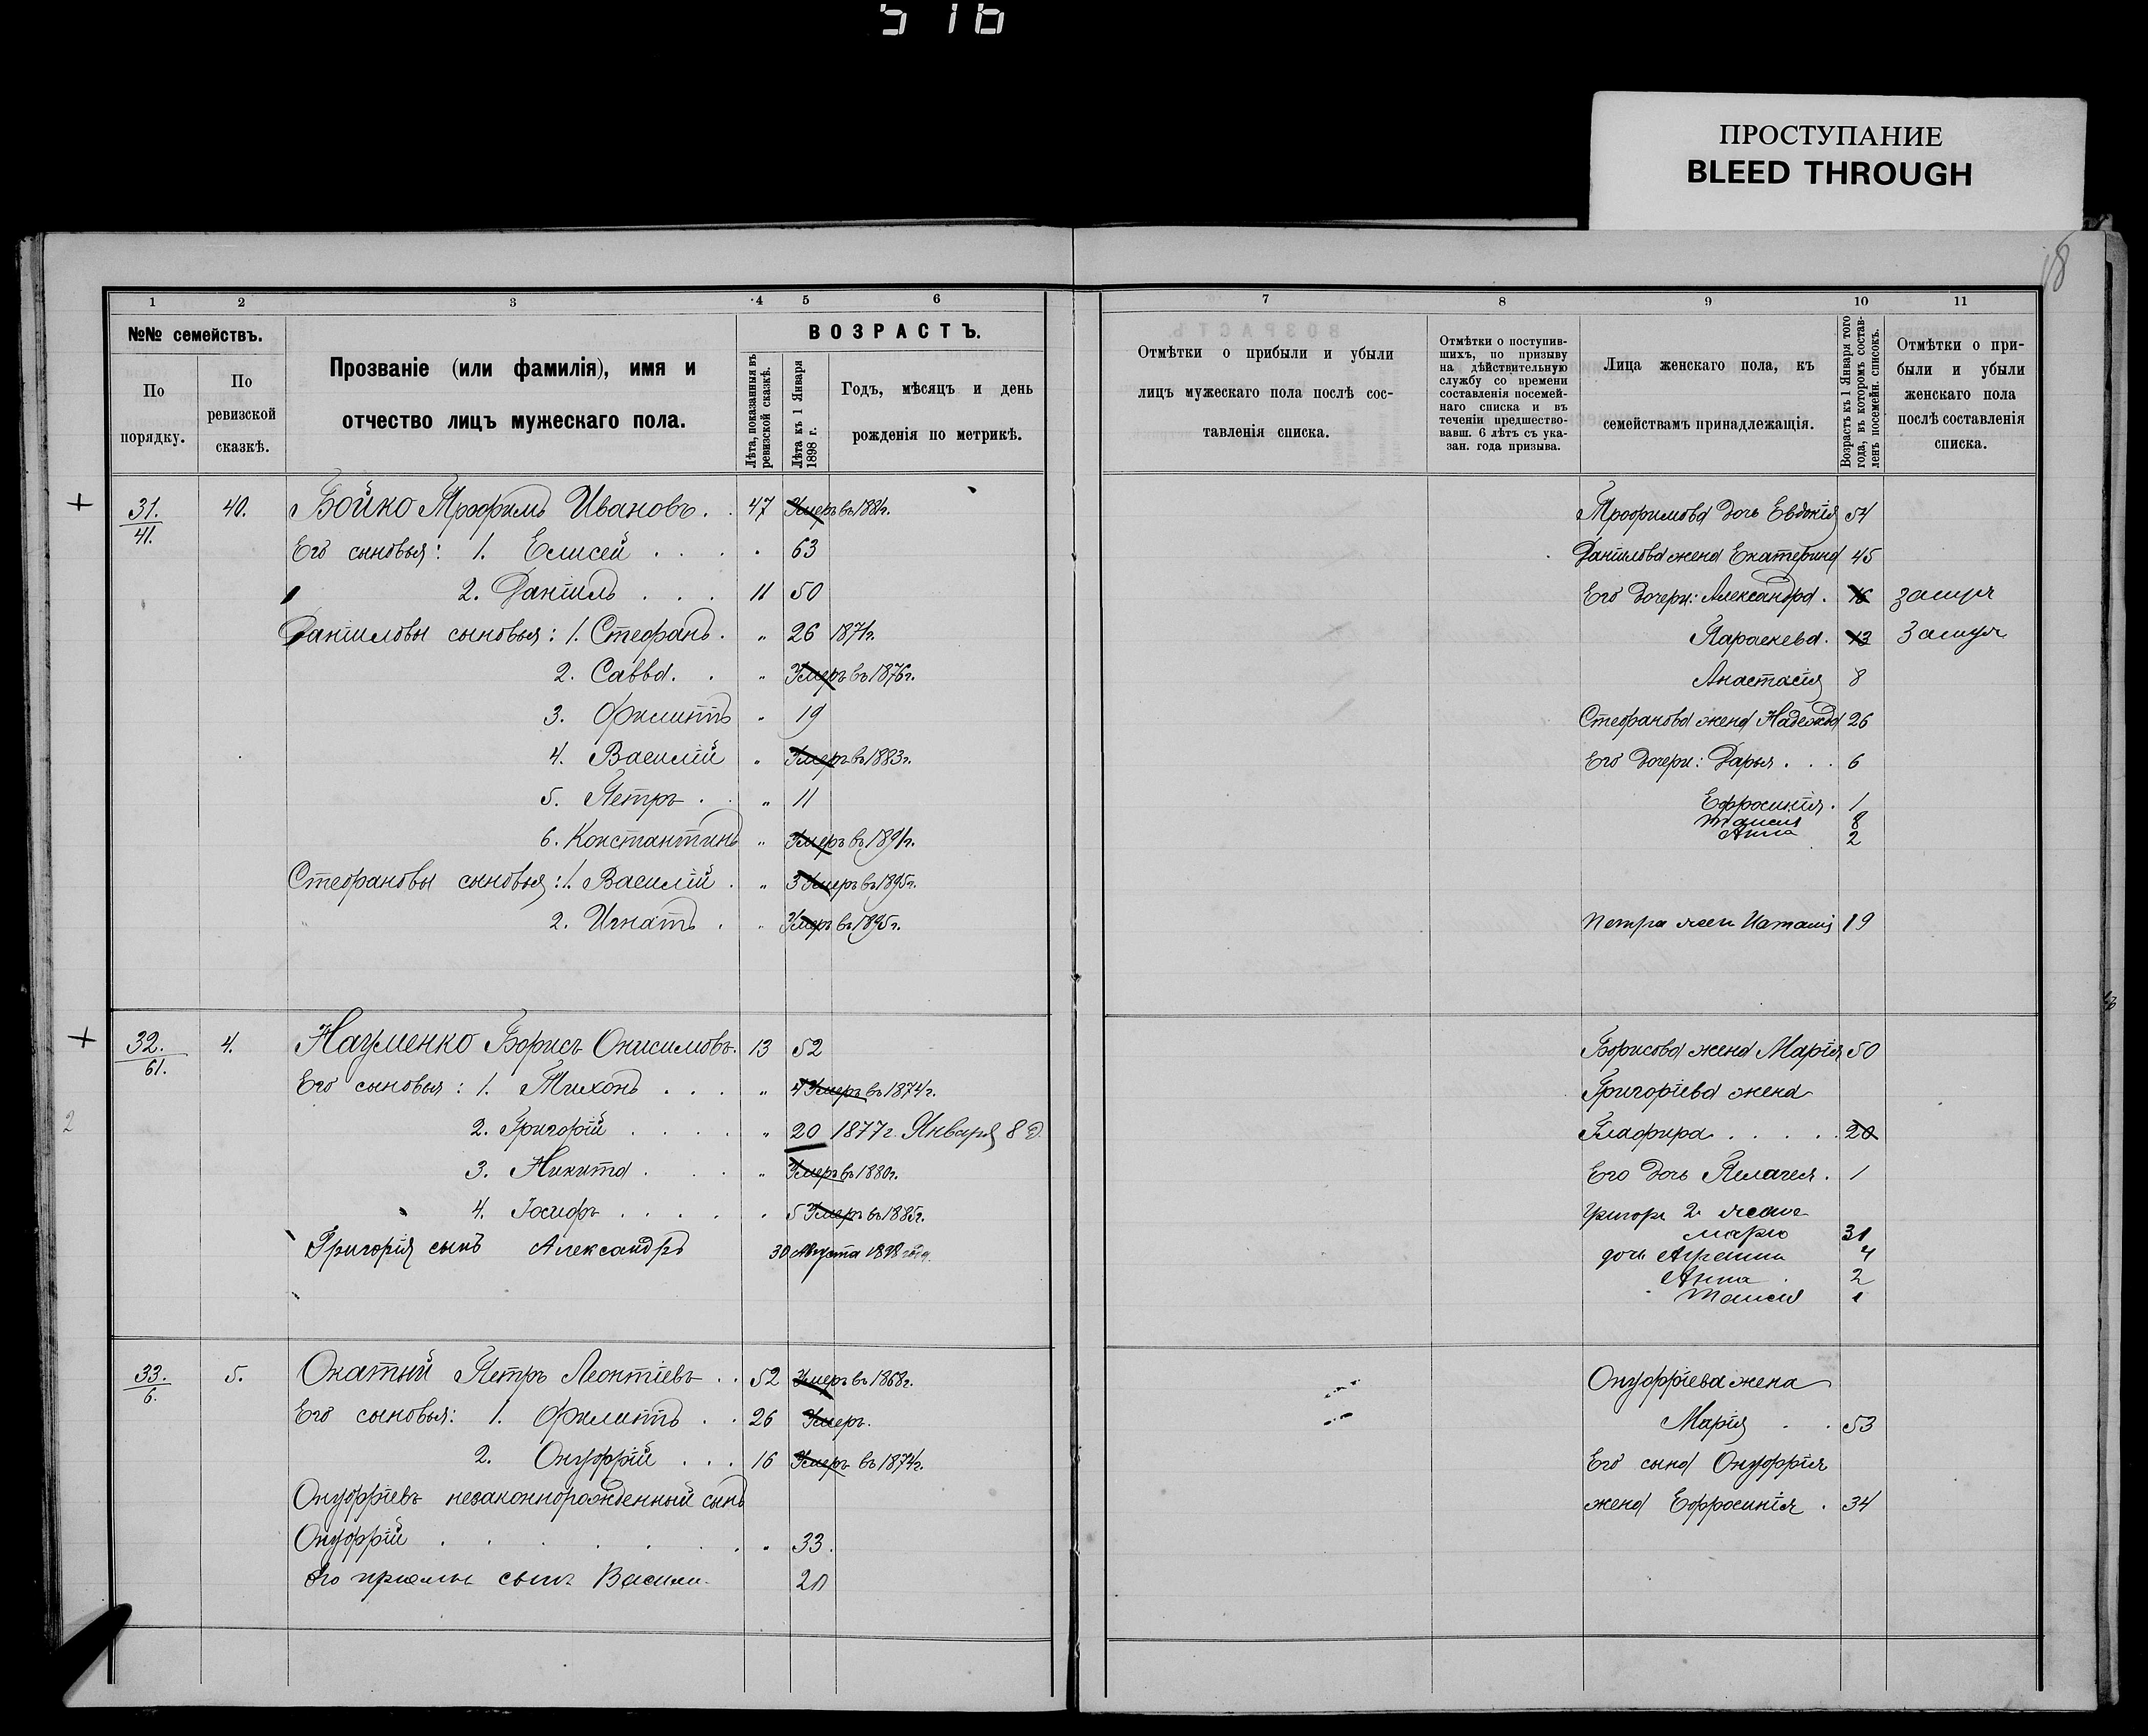 516
ПРОСТУПАНИЕ
BLEED THROUGH
18
1 2 3 4 5 6
№№ семействъ.
По порядку.
По ревизской сказкѣ.
Прозваніе (или фамилія), имя и
отчество лицъ мужескаго пола.
ВОЗРАСТЪ.
Лѣта, показанныя въ ревизской сказкѣ.
Лѣта къ 1 Января 1898 г.
Годъ, мѣсяцъ и день
рожденія по метрикѣ.
+ 31. 40. Бойко Трофимъ Ивановъ. . 47 Умеръ въ 1881г.
41.
Его сыновья: 1. Елисей . . . . 63
2. Даніилъ . . . 11 50
Даніиловы сыновья: 1. Стефанъ. „ 26 1871г.
2. Савва. . „ Умеръ въ 1876г.
3. Филиппъ „ 19
4. Василій „ Умеръ въ 1883г.
5. Петръ . . „ 11
6. Константинъ „ Умеръ въ 1891г.
Стефановы сыновья: 1. Василій . „ 3 Умеръ въ 1895г.
2. Игнатъ . „ Умеръ въ 1895г.
+ 32. 4. Науменко Борисъ Онисимовъ. 13 52
61.
Его сыновья: 1. Тихонъ . . . „ 4 Умеръ въ 1874г.
2
2. Григорій . . . . „ 20 1877г. Января 8 д.
3. Никита . . . „ Умеръ въ 1880г.
4. Іосифъ . . . . . 5 Умеръ въ 1885г.
Григорія сынъ Александръ 30 Августа 1898 года.
33. 5. Окатый Петръ Леонтіевъ . . 52 Умеръ въ 1868г.
6.
Его сыновья: 1. Филиппъ . . 26 Умеръ.
2. Онуфрій . . . 16 Умеръ въ 1874г.
Онуфріевъ незаконнорожденный сынъ
Онуфрій . . . . . . . „ 33.
Его сынъ Васили 20
7 8 9 10 11
Отмѣтки о прибыли и убыли
лицъ мужескаго пола послѣ сос-
тавленія списка.
Отмѣтки о поступив-
шихъ, по призыву
на дѣйствительную
службу со времени
составленія посемей-
наго списка и въ
теченіи предшество-
вавш. 6 лѣтъ съ ука-
зан. года призыва.
Лица женскаго пола, къ
семействамъ принадлежащія.
Возрастъ къ 1 Января того
года, въ которомъ состав-
ленъ посемейн. списокъ.
Отмѣтки о при-
были и убыли
женскаго пола
послѣ составленія
списка.
Трофимова дочь Евдокія 54
Даніилова жена Екатерина 45
Его дочери: Александра . 16 замуж
Параскева. 13 Замуж
Анастасія 8
Стефанова жена Надежда 26
Его дочери: Дарья . . . 6
Ефросинія. 1
Таисия 8
Анна 2
Петра жен Наталія 19
Борисова жена Марія 50
Григоріева жена
Глафира . . . . . 20
Его дочь Пелагея . 1
Григори 2 жена
Марія 31
дочь Агрепина 4
Анна 2
Таисия 1
Онуфріева жена
Марія . . 53
Его сына Онуфрія
жена Ефросинія . 34